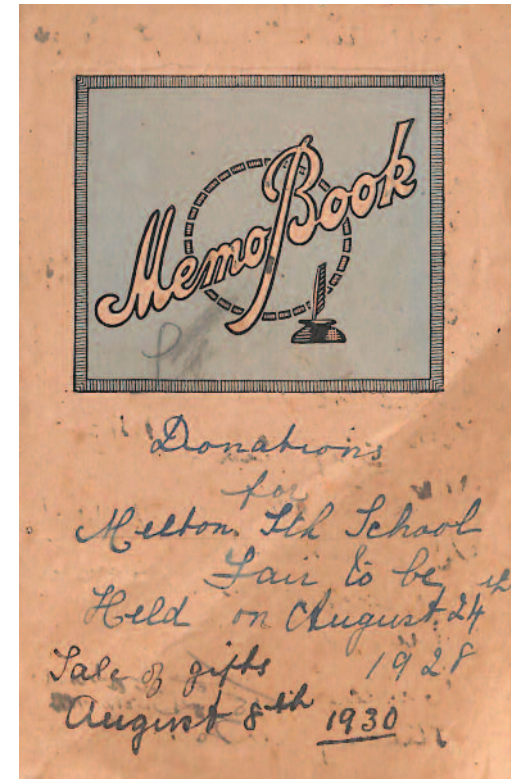 Memo Book
Donations
for
Melton Sth School
Fair to be
Held on August 24th
1928
Sale of gifts
August 8th 1930